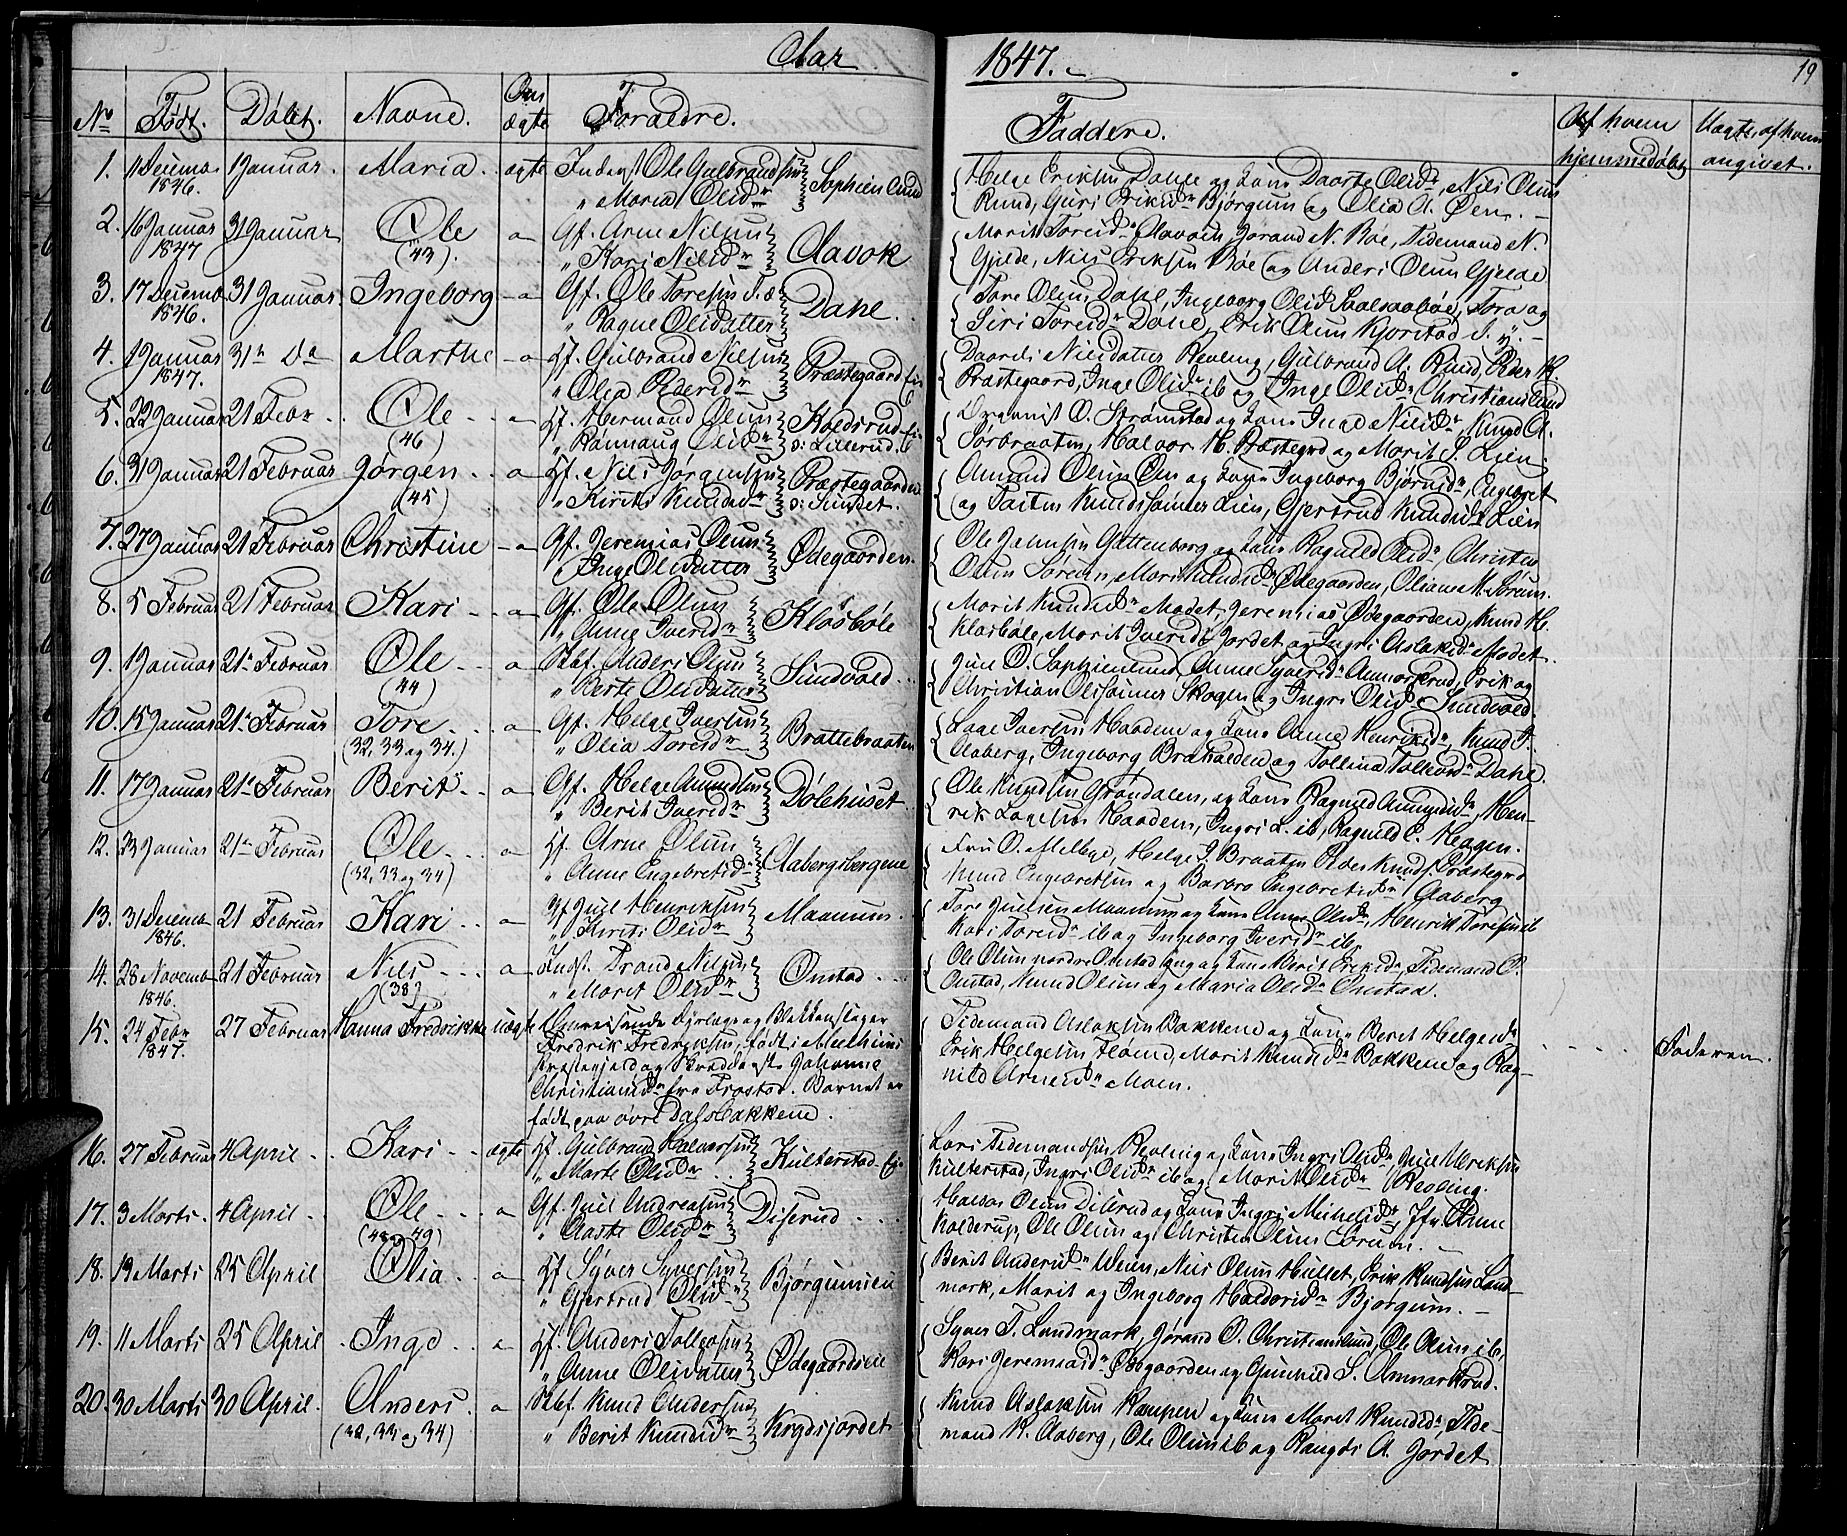 Aar 1847.
19
No Født. Døbt. Navne. Om ægte Foraldre. Faddere. Af hvem hjemmedøbt Uægte, af hvem angivet.
1. 1 Decembr 1846. 1 Januar. Maria. ægte Inderst Ole Gulbrandsen
" Maria Olsdr Sophienlund
Helge Eriksen Dahl og Kone Olsdr, Nils Olsen
Rund, Guri Eriksdr Bjørgum og Olia A. Øen.
2. 16 Januar 1847 31 Januar Ole (43). Gf. Arne Nilsen
" Kari Nilsdr Aavok
Marit Toresdr Aavock, Jørand N. Bøe, Tidemand N.
Gjelde, Nils Eriksen Bøe og Anders Olsen Gjelde
3. 17 Decembr 1846. 31 Januar. Ingeborg Gf. Ole Toresen
" Ragne Olsdatter Dahl.
Tore Olsen Dahl, Ingeborg Olsdr, Tora og
Siri Toresdr Dahl, Erik Olsen Kjørstad
4. 1 Januar 1847. 31n Do Marthe Hf. Gulbrand Nilsen
" Olia Præstegaard
Nilsdatter Revling, Gulbrand A. Rund,
Præstegaard, Inge Olsdr ib og Inge Olsdr Christianslund
5. 22 Januar 21 Febr. Ole (46) Hf. Hermand Olsen
" Rannaug Olsdr Kolsrud Lillerud.
O. Strømstad og Kone Inge Nilsdr, Knud A.
Sørbraaten, Halvor H. Præstegrd og Marit J. Lien.
6. 31 Januar 21 Februar Jørgen (45) Hf. Nils Jørgensen
" Kirsti Knudsdr Præstegaarden
Amund Olsen Øen og Kone Ingeborg Bjørnsdr, Engebret
og Torsten Knudssønner Lien, Gjertrud Knudsdr Lien
7. 27 Januar 21 Februar Christine Gf. Jeremias Olsen
Inge Olsdatter Ødegaarden.
Ole Jensen Gottenborg og Kone Ragnild Olsdr, Christen
Olsen Sørum, Marit Knudsdr Ødegaarden, Oliane M. Sørum.
8. 5 Februar 21 Februar Kari Gf. Ole Olsen
" Anne Iversdr Klosbøle
Marit Knudsdr Moelet, Jeremias Ødegaarden, Knud H.
Klosbøle, Marit Iversdr Jordet og Ingri Aslaksdr Moelet.
9. 1 Januar 21n Februar Ole (44) Anders Olsen
" Berte Olsdatter Sundvold
Juul O. Sophienlund, Anne Syversdr Ammarkrud, Erik og
Christian Olssønner Skogen og Ingri Olsdr Sundvold.
10. 15 Januar 21n Februar Tore (32, 33 og 34.) Gf. Helge Iversen
" Olia Toresdr Brattebraaten
Lage Iversen Haadem og Kone Anne Henriksdr, Knud T.
Aaberg, Ingeborg Brakalden og Tollina Tollevsdr Dahl.
11. 17 Januar 21n Februar Berit Gf. Helge Amundsen
" Berit Iversdr Dølehuset
Ole Knudsen Grøndalen, og Kone Ragnild Amundsdr, Hen-
rik Lagesen Haadem, Ingri L. ib, Ragnild E. Hagen.
12. 23 Januar 21n Februar Ole (32, 33 og 34) Hf. Arne Olsen
" Anne Engebretsdr Aabergsbergene
Fru O. Melbye, Helge I. Braaten, Peder Knuds. Præstegrd
Knud Engebretsen og Barbro Engebretsdr Aaberg
13. 31 Decembr 1846. 21 Februar Kari Gf Juul Henriksen
" Kirsti Olsdr Maanum
Tore Juulsen Maanum og Kone Anne Olsdr, Henrik Toresen ib
Kari Toresdr ib og Ingeborg Iversdr ib.
14. 28 Novembr 1846. 21 Februar Nils (38) Indst. Trond Nilsen
" Marit Olsdr Onstad
Ole Olsen nordre Onstad og Kone Berit Eriksdr, Tidemand O.
Onstad, Knud Olsen og Maria Olsdr Onstad.
15. 24 Febr 1847. 27 Februar Hanna Fredrikke uægte og Blikkenslager
Fredrik Fredriksen, født i
Præstegjeld og Johanne
Christiansdr fra . Barnet er
født paa øvre Dalsbakkene.
Tidemand Aslaksen Bakkene og Kone Berit Helgesdr
Erik Helgesen Fløum, Marit Knudsdr Bakkene og Rag-
nild Arnesdr Moen.
Faderen.
16. 27 Februar 4 April Kari ægte Hf. Gulbrand Halvorsen
" Marte Olsdr Kulterstad
Lars Tidemandsen Revling og Kone Ingri Olsdr, Juul Ulriksen
Kulterstad, Ingri Olsdr ib og Marit Olsdr Revling.
17. 3 Marts. 4 April Ole (48 og 49) Gf. Juul Andreasen
" Aaste Olsdr Diserud
Halvor Olsen Diserud og Kone Ingri Michelsdr, Jfr Anne
Kolderup, Ole Olsen og Christen Olsen Sørum.
18. 19 Marts 25 April Olia Hf Syver Syversen
" Gjertrud Olsdr Bjørgumseie
Berit Andersdr Veien, Nils Olsen Hullet, Erik Knudsen Land-
mark, Marit og Ingeborg Halvorsdr Bjørgum.
19. 11 Marts 25 April Inge Hf. Anders Tollevsen
" Anne Olsdatter Ødegaardseie
Syver T. Lundmark, Jørand O. Christianslund, Ole Olsen ib,
Kari Jeremiasdr Ødegaarden og Gunhild S. Ammarkrud.
20. 30 Marts 30 April. Anders (32, 33 og 34) Knud Andersen
" Berit Knudsdr Krydsjordet
Knud Aslaksen Kampen og Kone Marit Knudsdr, Tide-
mand K. Aaberg, Ole Olsen ib og Rangdi A. Jordet